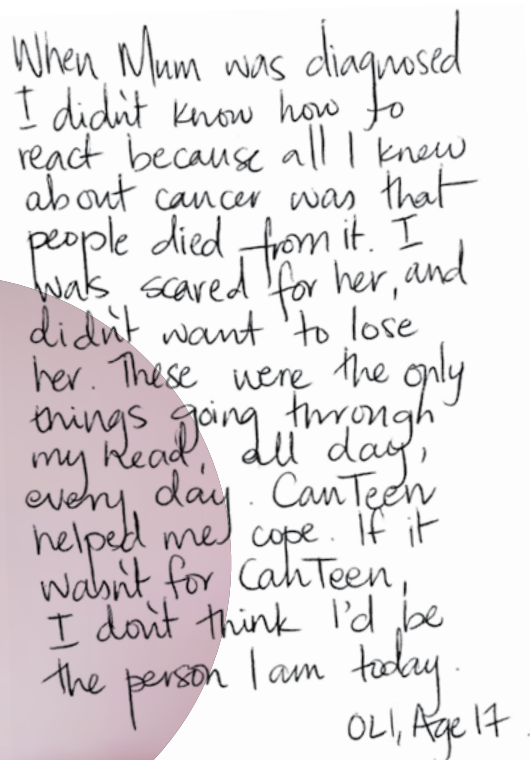 When Mum was diagnosed
I didn't know how to
react because all I knew
about cancer was that
people died from it. I
was scared for her, and
didn't want to lose
her. These were the only
things going through
my head, all day,
every day. CanTeen
helped me cope. If it
wasn't for CanTeen,
I don't think I'd be
the person I am today.
OLI, Age 17.